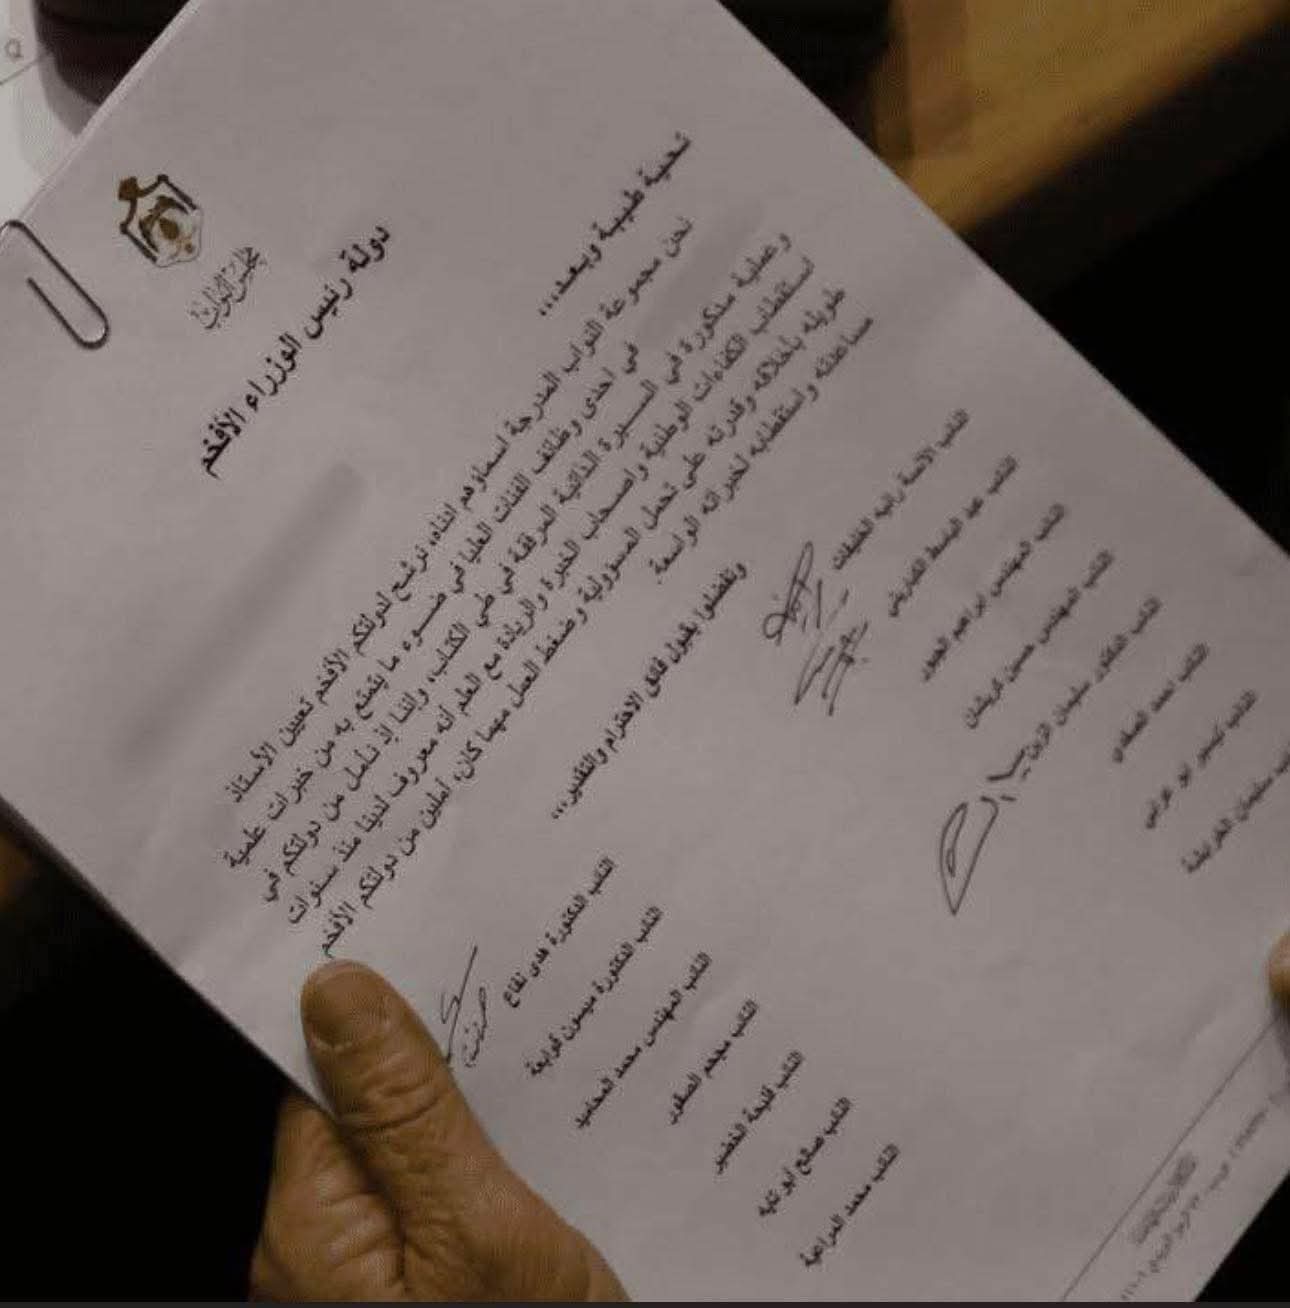 مجلس النواب
دولة رئيس الوزراء الأفخم
تحية طيبة وبعد،،،
نحن مجموعة النواب المدرجة اسماؤهم ادناه، نرشح لدولتكم الأفخم تعيين الأستاذ
في احدى وظائف الفئات العليا في ضوء ما يتمتع به من خبرات علمية
وعملية مذكورة في السيرة الذاتية المرفقة في طي الكتاب، واننا إذ نأمل من دولتكم في
استقطاب الكفاءات الوطنية واصحاب الخبرة والريادة مع العلم أنه معروف لدينا منذ سنوات
طويله بأخلاقه وقدرته على تحمل المسؤولية وضغط العمل مهما كان، آملين من دولتكم الأفخم
مساعدته واستقطابه لخبراته الواسعة.
وتفضلوا بقبول فائق الاحترام والتقدير،،،
النائب الآنسة رانيه
النائب الدكتورة هدى نفاع
النائب عبد الباسط الكباريتي
النائب الدكتورة ميسون قوابعة
النائب المهندس ابراهيم الجبور
النائب المهندس محمد المحاسيس
النائب المهندس حسين كريشان
النائب مجحم الصقور
النائب الدكتور سليمان الزبن
النائب فليحة الخضير
النائب احمد الصفدي
النائب صالح أبو تايه
النائب تيسير أبو عرابي
النائب محمد المراعية
سليمان الخرابشة